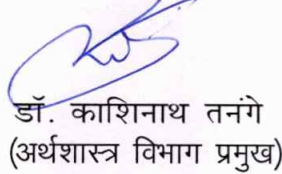 डॉ. काशिनाथ तनंगे
(अर्थशास्त्र विभाग प्रमुख)